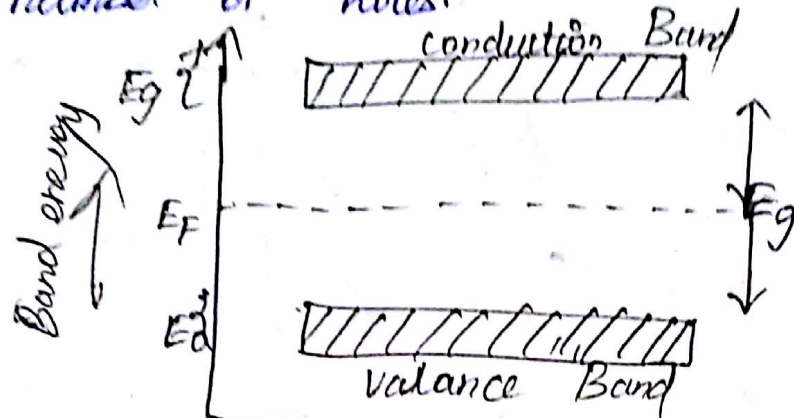 number of holes.
conduction Band
Eg
Band enevgy
EF
Eg
Ed
Valance Band